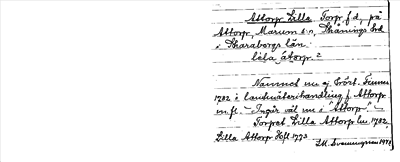 Attorp Lilla Torp f.d. på
Attorp, Marum sn, Skånings hd
i Skaraborgs län.
lilla åtorp?
Namnet nu ej brört. Finnes
1782 i lantmäterihandling f. Attorp
m.fl. - Ingår väl nu i "Attorp" -
Torpet Lilla Attorp Lm 1782.
Lilla Attorp Hfl 1773